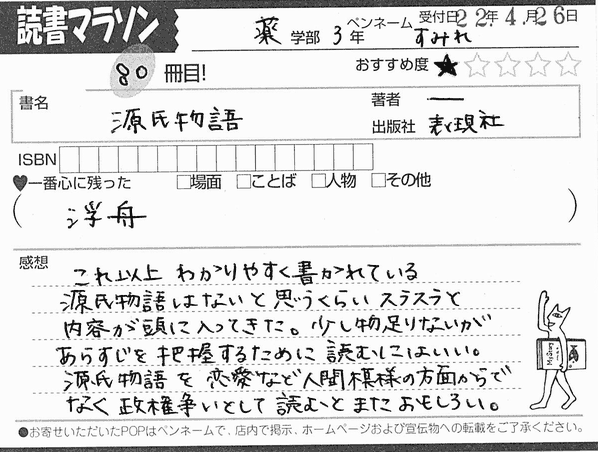 読書マラソン
薬 学部 3 年 ペンネーム すみれ 受付日 22年 4.月26日
80 冊目!
おすすめ度 ★☆☆☆☆
書名 源氏物語
著者 ー
出版社 表現社
ISBN
♥一番心に残った □場面 □ことば □人物 □その他
( 浮舟 )
感想
これ以上 わかりやすく書かれている
源氏物語はないと思うくらいスラスラと
内容が頭に入ってきた。少し物足りないが
あらすじを把握するために読むにはいい。
源氏物語を恋愛など人間模様の方面からで
なく政権争いとして読むとまたおもしろい。
●お寄せいただいたPOPはペンネームで、店内で掲示、ホームページおよび宣伝物への転載をご了承ください。